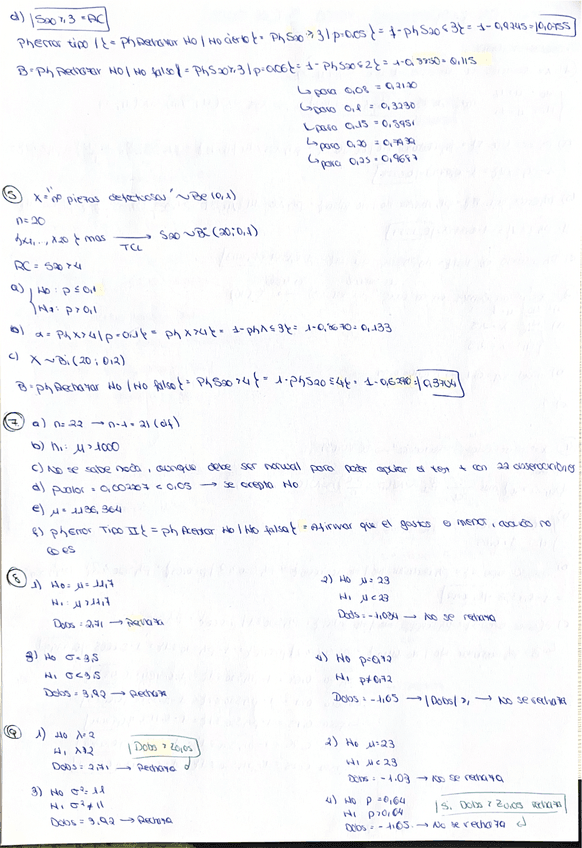 d) S20 ≥ 3 = RC
P{Error tipo I} = P{Rechazar H0 | H0 cierto} = P{S20 ≥ 3 | p=0.05} = 1-P{S20 ≤ 3} = 1-0,9245 = 0,0755
B = P{Rechazar H0 | H0 falsa} = P{S20 ≥ 3 | p=0.06} = 1-P{S20 ≤ 2} = 1-0,8850 = 0,115
↳ para 0,08 = 0,2120
↳ para 0,1 = 0,3230
↳ para 0,15 = 0,5951
↳ para 0,20 = 0,7939
↳ para 0,25 = 0,9087
⑤ X = "nº piezas defectuosas" ~ Be (0,1)
n = 20
{x1,..., x20} mas → S20 ~ Bi (20; 0,1)
TCL
RC = S20 > 4
a) H0 : p ≤ 0,1
H1 : p > 0,1
b) α = P{X > 4 | p = 0.1} = P{X > 4} = 1-P{X ≤ 3} = 1-0,8670 = 0,133
c) X ~ Bi (20; 0,2)
B = P{Rechazar H0 | H0 falsa} = P{S20 > 4} = 1-P{S20 ≤ 4} = 1-0,6296 = 0,3704
⑦ a) n = 22 → n-1 = 21 (df)
b) H1: μ > 1000
c) No se sabe nada, aunque debe ser normal para poder aplicar el test t con 22 observaciones
d) pvalor = 0,002207 < 0,05 → se acepta H0
e) μ = 1136,364
f) P{Error Tipo II} = P{Aceptar H0 | H0 falsa} = Afirmar que el gasto es menor, cuando no
lo es
⑧ 1) H0 = μ = 11,7
H1 : μ > 11,7
Dobs = 2,71 → Rechaza
2) H0 μ = 23
H1 μ < 23
Dobs = -1,034 → No se rechaza
3) H0 σ = 3,5
H1 σ < 3,5
Dobs = 3,92 → Rechaza
4) H0 p = 0,72
H1 p ≠ 0,72
Dobs = -1,05 → |Dobs| >, → No se rechaza
⑨ 1) H0 λ = 2
H1 λ > 2
Dobs > Z0,05
Dobs = 2,71 → Rechaza
2) H0 μ = 23
H1 μ < 23
Dobs = -1.03 → No se rechaza
3) H0 σ² = 11
H1 σ² ≠ 11
Dobs = 3,92 → Rechaza
4) H0 p = 0,64
H1 p > 0,64
Si Dobs > Z0,05 rechaza
Dobs = -1,05 → No se rechaza